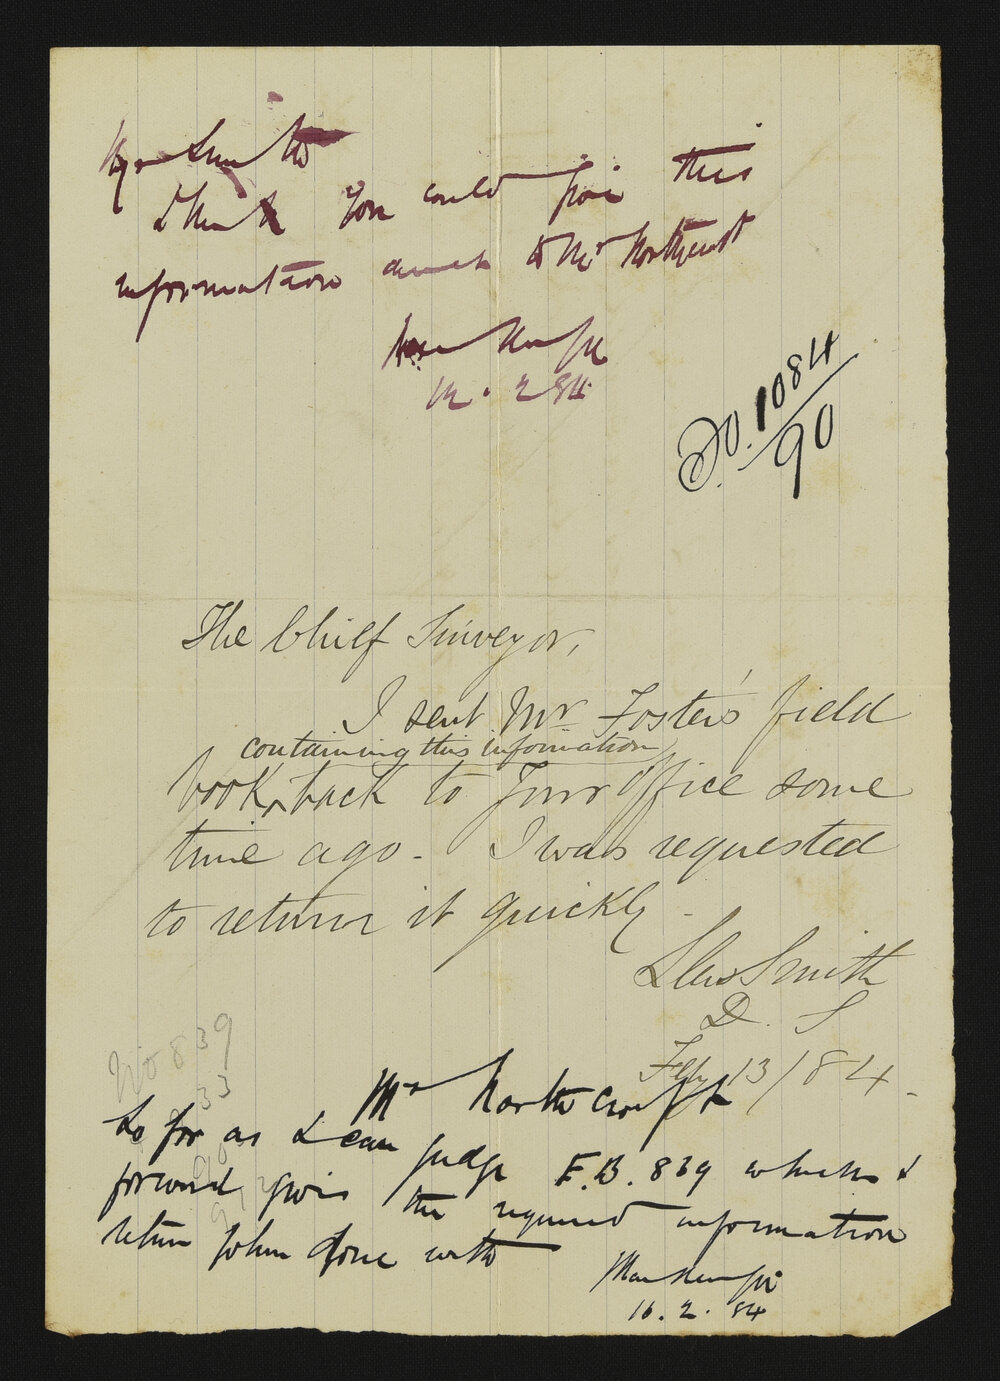 Mr Smith
I think you could give this
information direct to Mr Northcroft
12.2.84
D.O. 1084/90
The Chief Surveyor,
I sent Mr Foster's field
containing this information
book back to Your Office some
time ago. I was requested
to return it quickly.
Smith
D. S
Feby 13/84.
No 839
33
Mr Northcroft
So far as I can judge F.B. 839 which I
forward gives the required information
return when done with
16.2.84